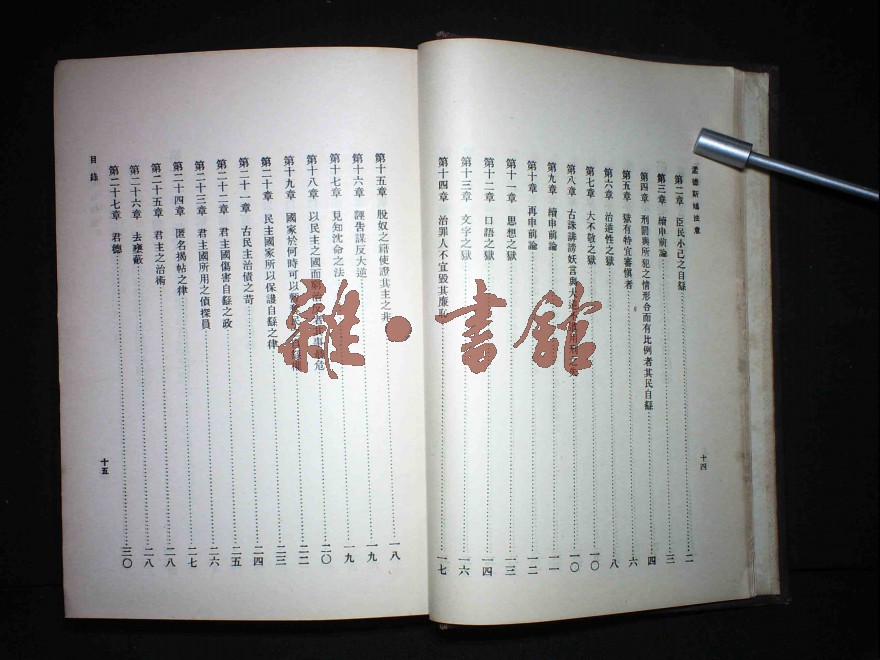 孟德斯鳩法意
第二章 臣民小己之自繇 二
第三章 續申前論 三
第四章 刑罰與所犯之情形合而有比例者其民自繇 四
第五章 獄有特宜審愼者 六
第六章 治造性之獄 八
第七章 大不敬之獄 一〇
第八章 古誅誹謗妖言與大 一〇
第九章 續申前論 一一
第十章 再申前論 一二
第十一章 思想之獄 一三
第十二章 口語之獄 一四
第十三章 文字之獄 一六
第十四章 治罪人不宜毀其廉恥 一七
十四
第十五章 脫奴之籍使證其主之非 一八
第十六章 誣告謀反大逆 一九
第十七章 見知沈命之法 一九
第十八章 以民主之國而窮治反者其事最危 二〇
第十九章 國家於何時可以暫奪民自繇權 二二
第二十章 民主國家所以保護自繇之律 二三
第二十一章 古民主治債之苛 二四
第二十二章 君主國傷害自繇之政 二五
第二十三章 君主國所用之偵探員 二六
第二十四章 匿名揭帖之律 二七
第二十五章 君主之治術 二八
第二十六章 去壅蔽 二八
第二十七章 君德 三〇
目錄
十五
雜·書館